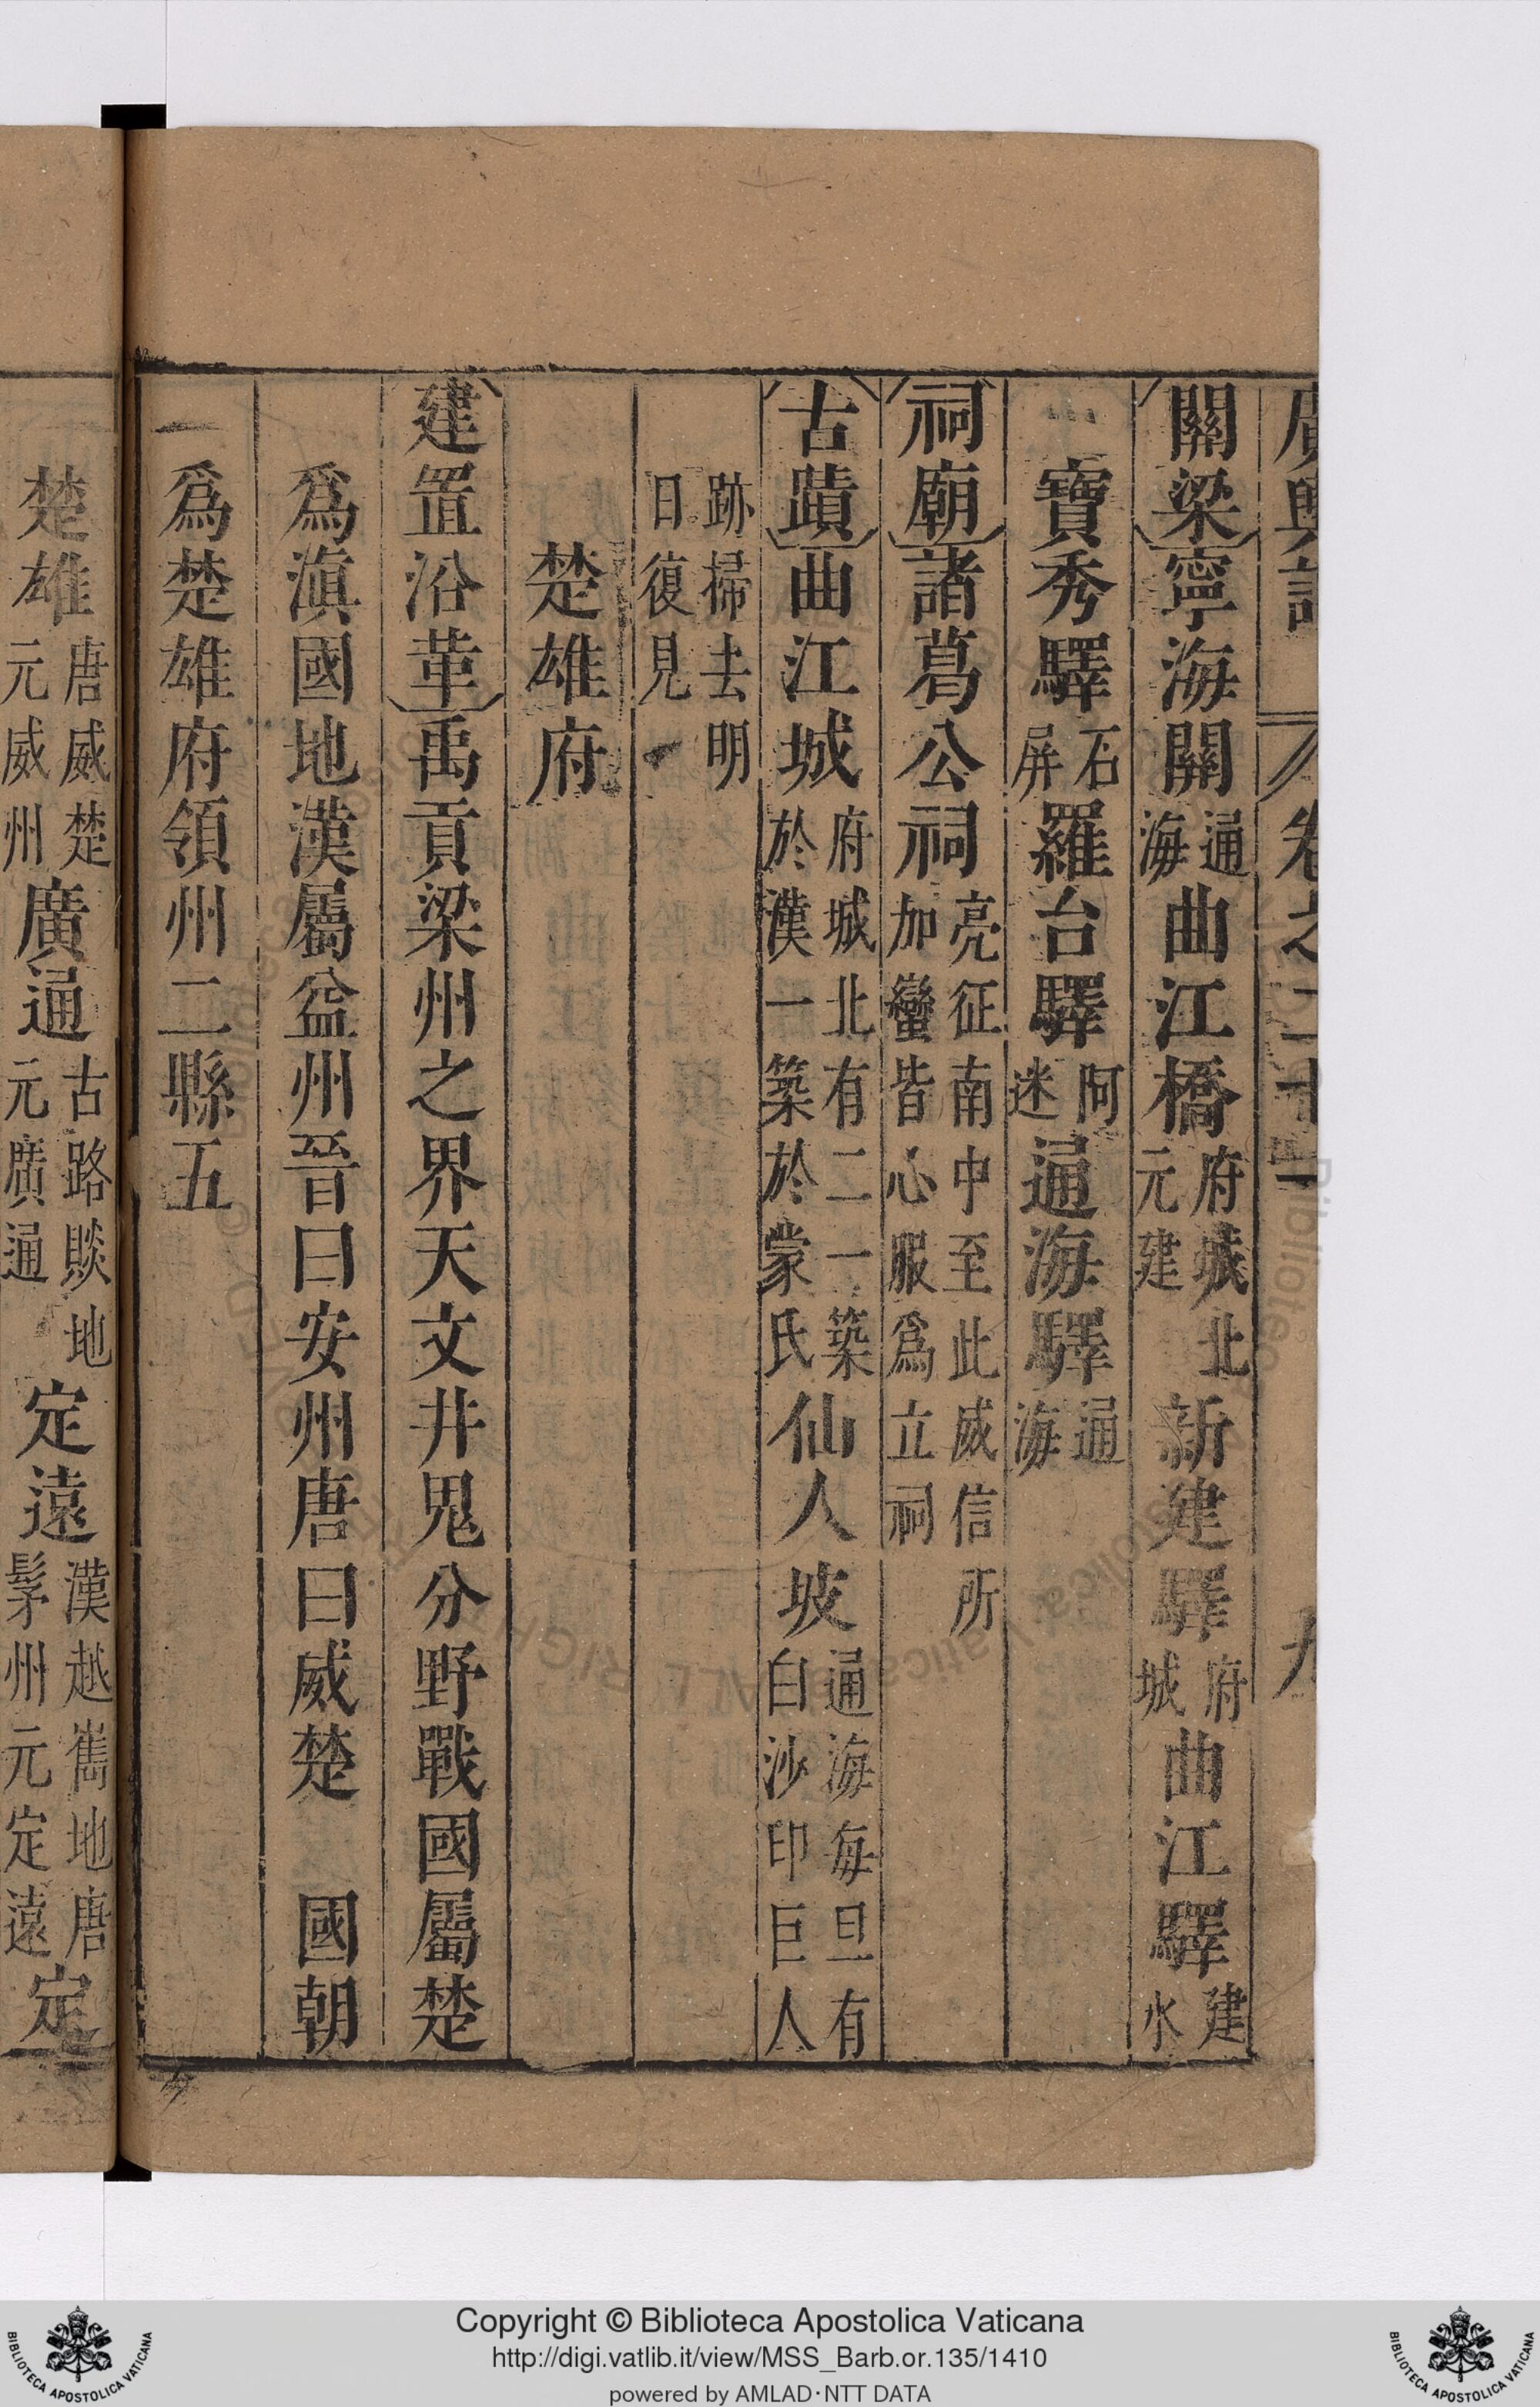 廣輿記 卷之二十一 九
關梁寧海關通海曲江橋府城北元建新建驛府城曲江驛建水
寶秀驛石屏羅台驛阿迷通海驛通海
祠廟諸葛公祠亮征南中至此威信所加蠻皆心服爲立祠
古蹟曲江城府城北有二一築於漢一築於蒙氏仙人坡通海每旦有白沙印巨人
跡掃去明日復見
楚雄府
建置沿革禹貢梁州之界天文井鬼分野戰國屬楚
爲滇國地漢屬益州晉曰安州唐曰威楚 國朝
爲楚雄府領州二縣五
楚雄唐威楚元威州廣通古路賧地元廣通定遠漢越嶲地唐髳州元定遠定
Copyright © Biblioteca Apostolica Vaticana
http://digi.vatlib.it/view/MSS_Barb.or.135/1410
powered by AMLAD·NTT DATA
BIBLIOTECA APOSTOLICA VATICANA
BIBLIOTECA APOSTOLICA VATICANA